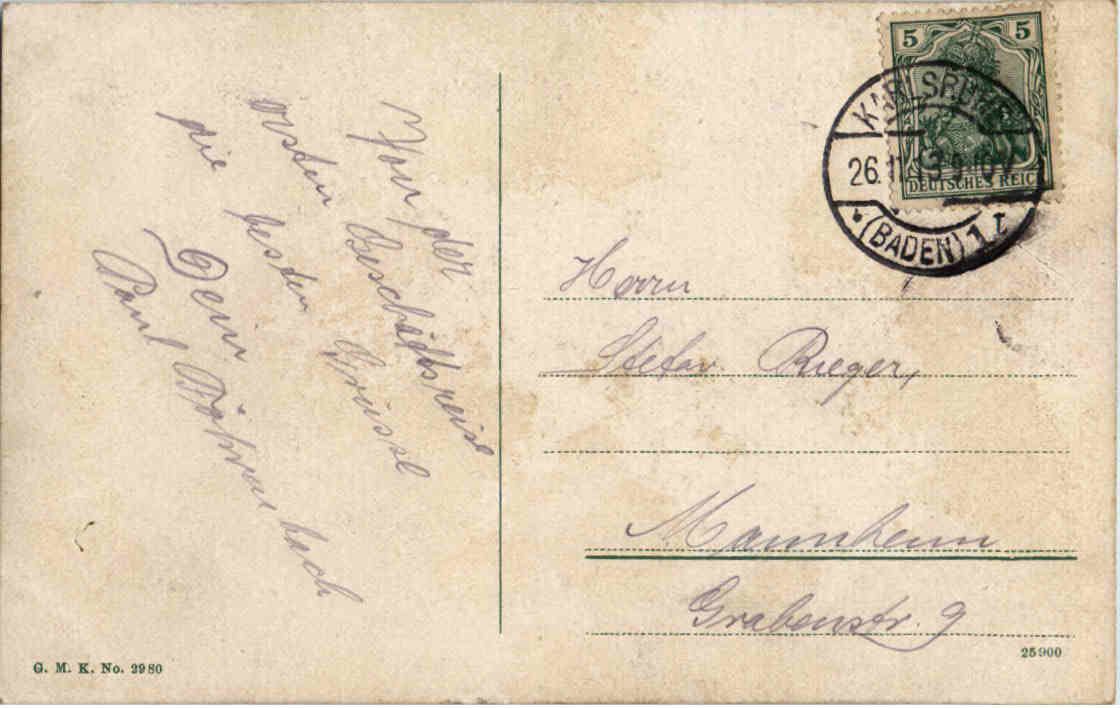 Von der
ersten Geschäftsreise
die besten Grüsse
Dein
Paul
5 5
DEUTSCHES REICH
KARLSRUHE
26.11.13 9-10V
(BADEN) 1
Herrn
Stefan Rieger,
Mannheim
Grabenstr. 9
G. M. K. No. 2980
25900